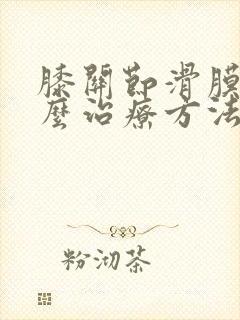 膝關節滑膜
麼治療方法
粉沏茶